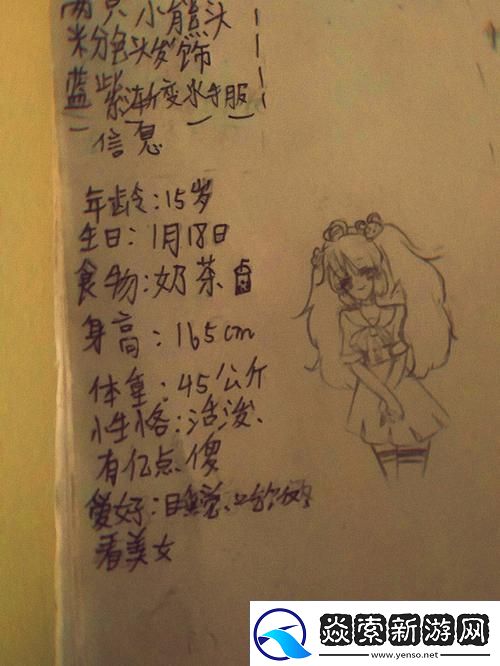 两只小熊头
粉色头发饰
蓝紫渐变水手服
信息
年龄:15岁
生日:1月18日
食物:奶茶
身高:165cm
体重:45公斤
性格:活泼、
有亿点傻
爱好:睡觉、
看美女
焱索新游网
www.yenso.net